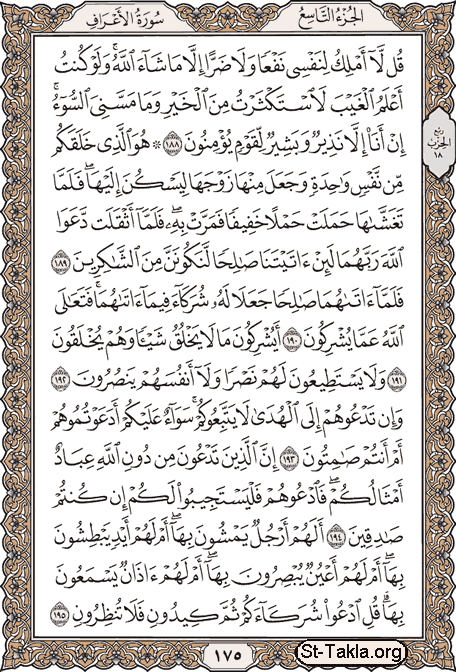 الجزء التاسع سورة الأعراف
قُل لَّآ أَمْلِكُ لِنَفْسِى نَفْعًا وَلَا ضَرًّا إِلَّا مَا شَآءَ ٱللَّهُ ۚ وَلَوْ كُنتُ
أَعْلَمُ ٱلْغَيْبَ لَٱسْتَكْثَرْتُ مِنَ ٱلْخَيْرِ وَمَا مَسَّنِىَ ٱلسُّوٓءُ ۚ
إِنْ أَنَا۠ إِلَّا نَذِيرٌ وَبَشِيرٌ لِّقَوْمٍ يُؤْمِنُونَ ١٨٨ ۞ هُوَ ٱلَّذِى خَلَقَكُم
مِّن نَّفْسٍ وَٰحِدَةٍ وَجَعَلَ مِنْهَا زَوْجَهَا لِيَسْكُنَ إِلَيْهَا ۖ فَلَمَّا
تَغَشَّىٰهَا حَمَلَتْ حَمْلًا خَفِيفًا فَمَرَّتْ بِهِۦ ۖ فَلَمَّآ أَثْقَلَت دَّعَوَا
ٱللَّهَ رَبَّهُمَا لَئِنْ ءَاتَيْتَنَا صَٰلِحًا لَّنَكُونَنَّ مِنَ ٱلشَّٰكِرِينَ ١٨٩
فَلَمَّآ ءَاتَىٰهُمَا صَٰلِحًا جَعَلَا لَهُۥ شُرَكَآءَ فِيمَآ ءَاتَىٰهُمَا ۚ فَتَعَٰلَى
ٱللَّهُ عَمَّا يُشْرِكُونَ ١٩٠ أَيُشْرِكُونَ مَا لَا يَخْلُقُ شَيْـًٔا وَهُمْ يُخْلَقُونَ
١٩١ وَلَا يَسْتَطِيعُونَ لَهُمْ نَصْرًا وَلَآ أَنفُسَهُمْ يَنصُرُونَ ١٩٢
وَإِن تَدْعُوهُمْ إِلَى ٱلْهُدَىٰ لَا يَتَّبِعُوكُمْ ۚ سَوَآءٌ عَلَيْكُمْ أَدَعَوْتُمُوهُمْ
أَمْ أَنتُمْ صَٰمِتُونَ ١٩٣ إِنَّ ٱلَّذِينَ تَدْعُونَ مِن دُونِ ٱللَّهِ عِبَادٌ
أَمْثَالُكُمْ ۖ فَٱدْعُوهُمْ فَلْيَسْتَجِيبُوا۟ لَكُمْ إِن كُنتُمْ
صَٰدِقِينَ ١٩٤ أَلَهُمْ أَرْجُلٌ يَمْشُونَ بِهَآ ۖ أَمْ لَهُمْ أَيْدٍ يَبْطِشُونَ
بِهَآ ۖ أَمْ لَهُمْ أَعْيُنٌ يُبْصِرُونَ بِهَآ ۖ أَمْ لَهُمْ ءَاذَانٌ يَسْمَعُونَ
بِهَا ۗ قُلِ ٱدْعُوا۟ شُرَكَآءَكُمْ ثُمَّ كِيدُونِ فَلَا تُنظِرُونِ ١٩٥
ربع
الحزب
١٨
١٧٥
St-Takla.org